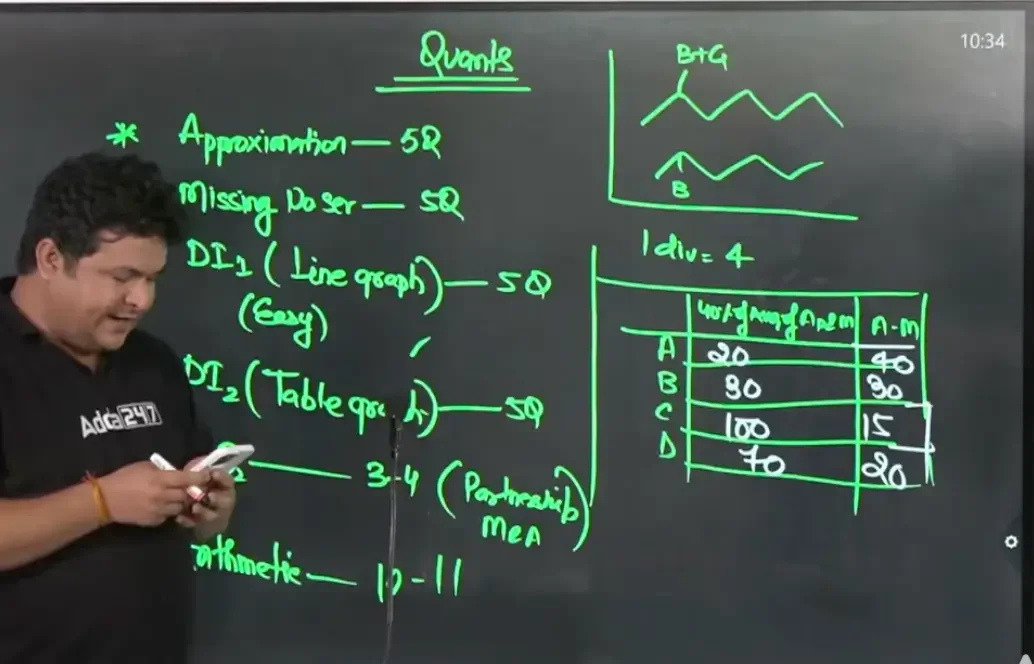 10:34
Quants
* Approximation — 5Q
Missing No Ser — 5Q
DI1 (Line graph) — 5Q
(Easy)
DI2 (Table graph) — 5Q
Q2 — 3-4 (Partnership
M&A)
rithmetic — 10-11
B+G
B
1 div = 4
40% of Avg of A & M A-M
A 20 40
B 30 30
C 100 15
D 70 20
Adda 247